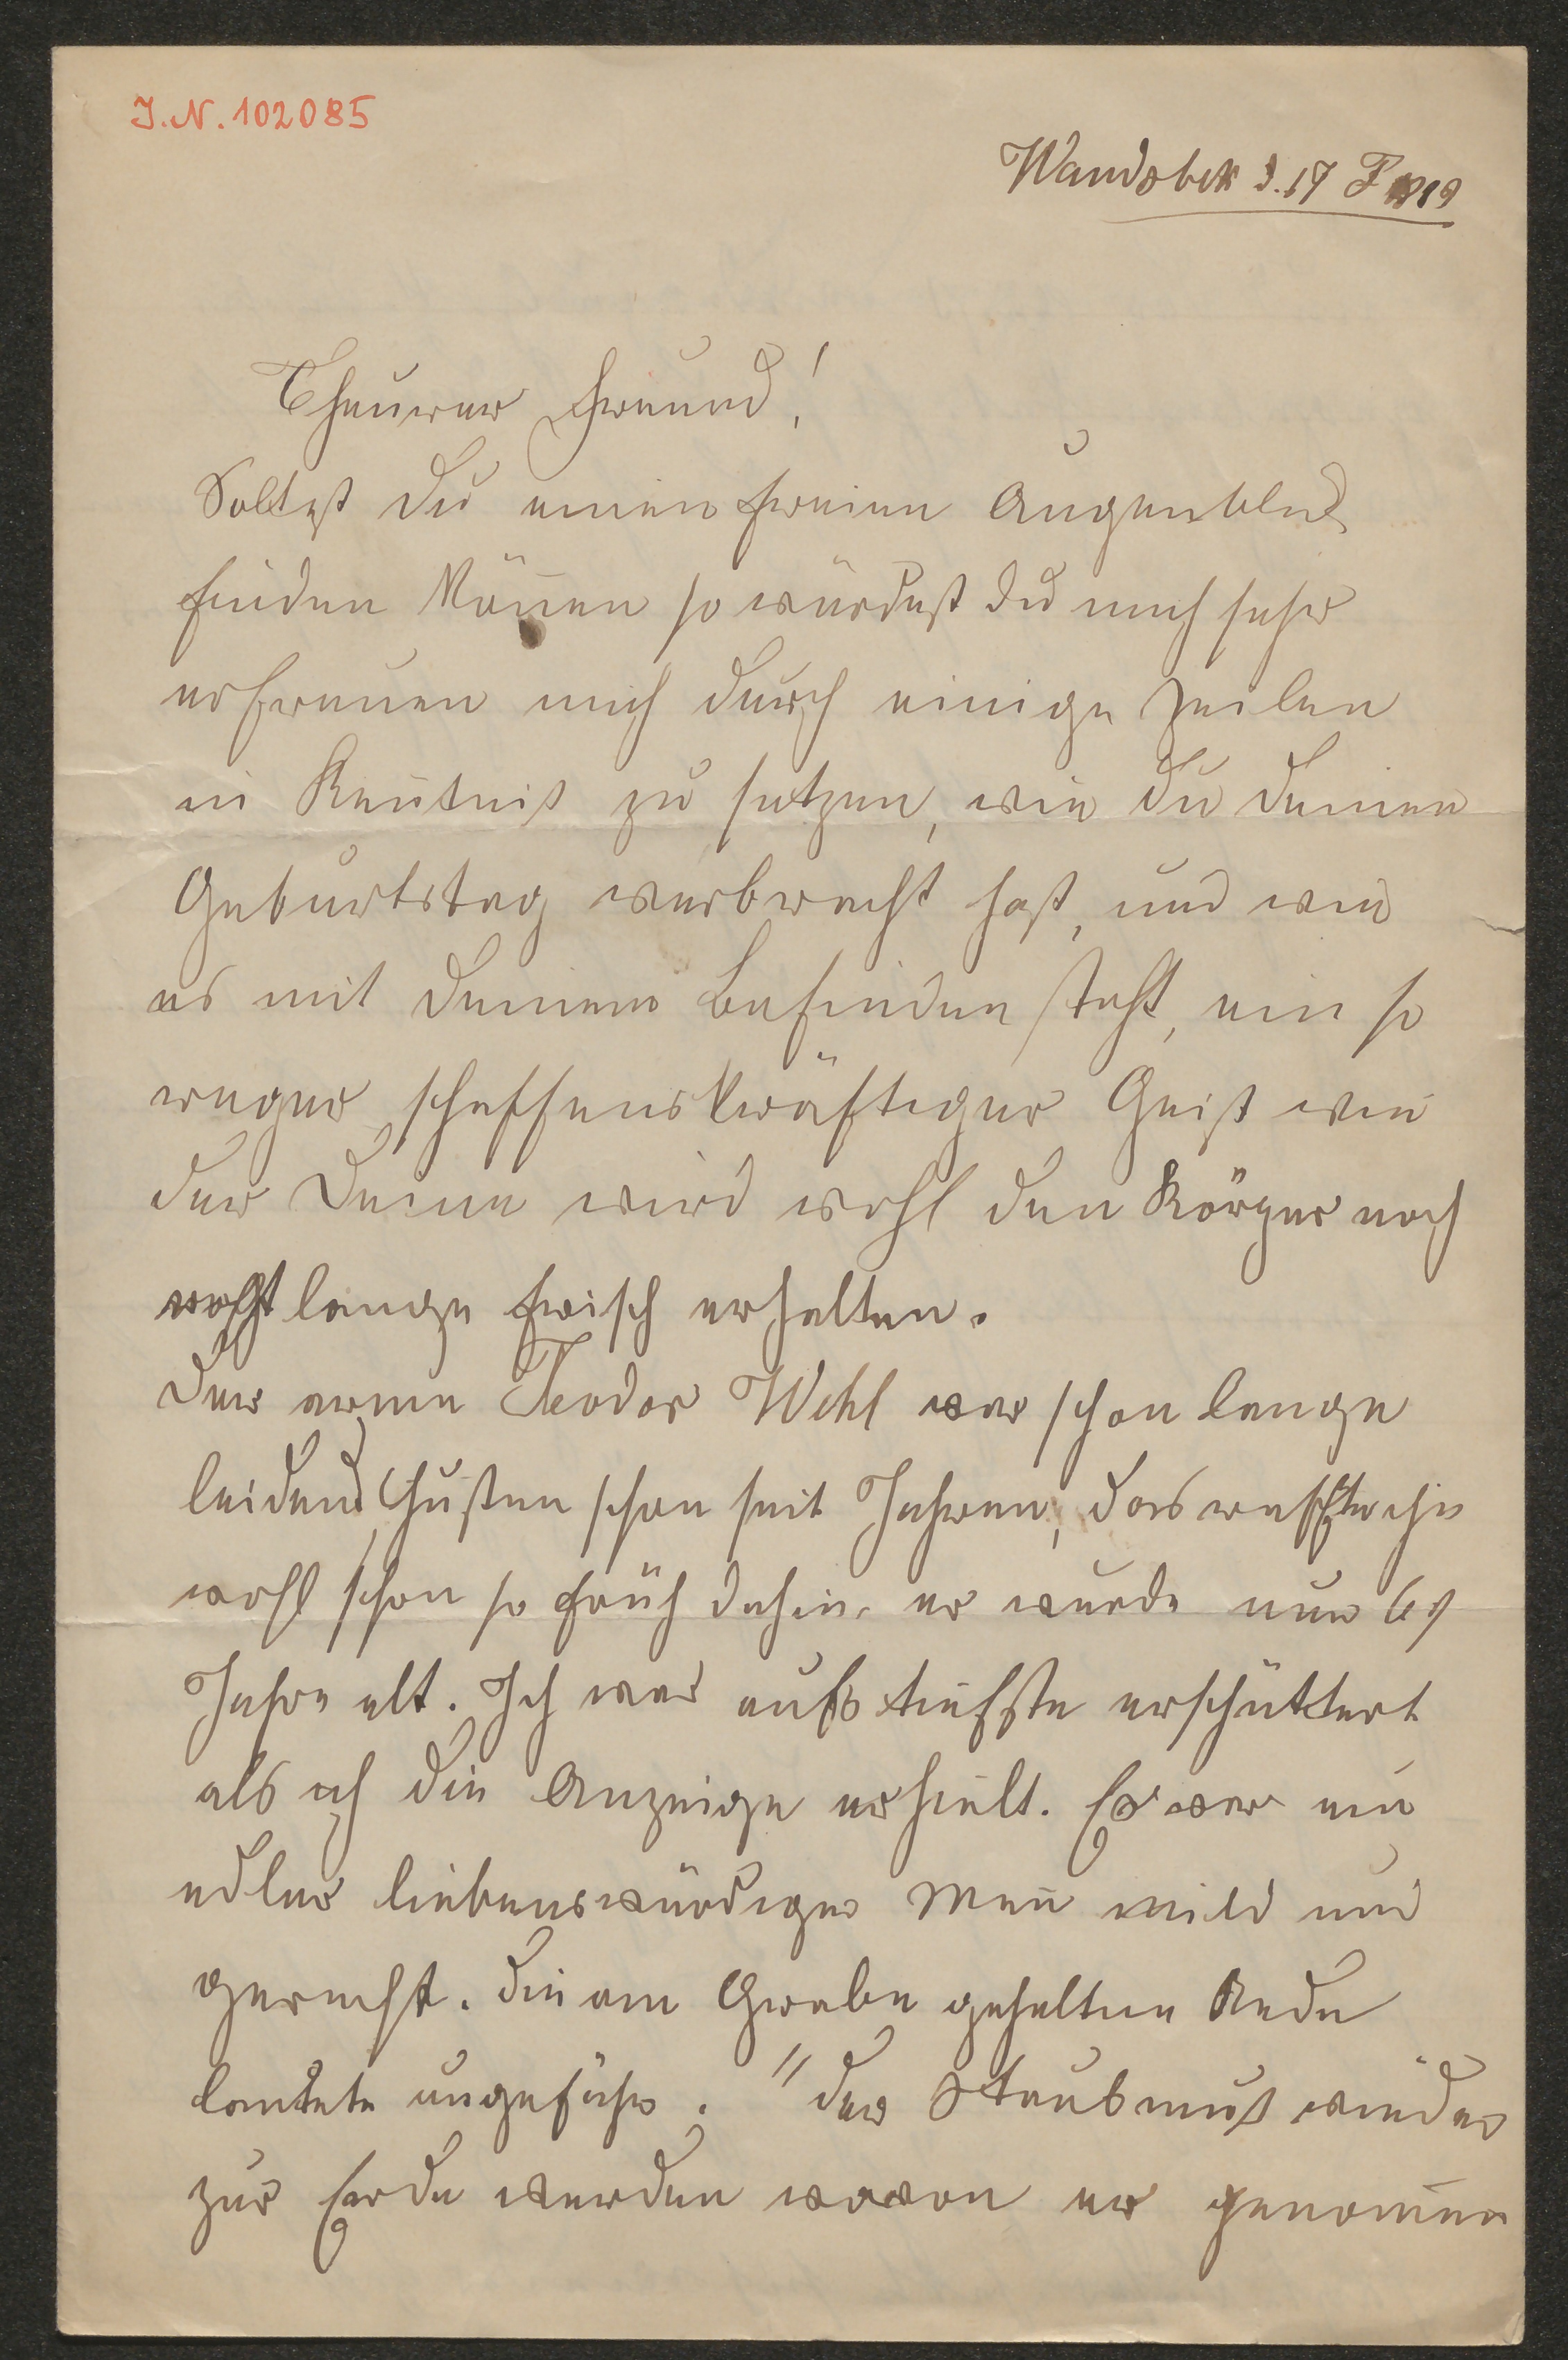 J.N. 102085
Wandsbek d. 17 F
Theurer Freund!
Soltest Du einen freien Augenblick
finden könen so würdest Du mich sehr
erfreuen mich durch einige Zeilen
in Kentnis zu setzen, wie Du Deinen
Geburtstag verbracht hast, und wie
es mit Deinem Befinden steht, ein so
reger schaffenskräftiger Geist wie
der Deine wird wohl den Körper noch
recht lange frisch erhalten.
Der arme Feodor Wehl war schon lange
leidend, Husten schon seit Jahren, das raffte ihn
wohl schon so früh dahin, er wurde nur 69
Jahre alt. Ich war aufs tiefste erschüttert
als ich die Anzeige erhielt. Er war ein
edler liebenswürdiger Man mild und
gerecht. Die am Grabe gehaltne Rede
lautete ungefähr. "Der Staub muß wieder
zur Erde werden wovon er genomen